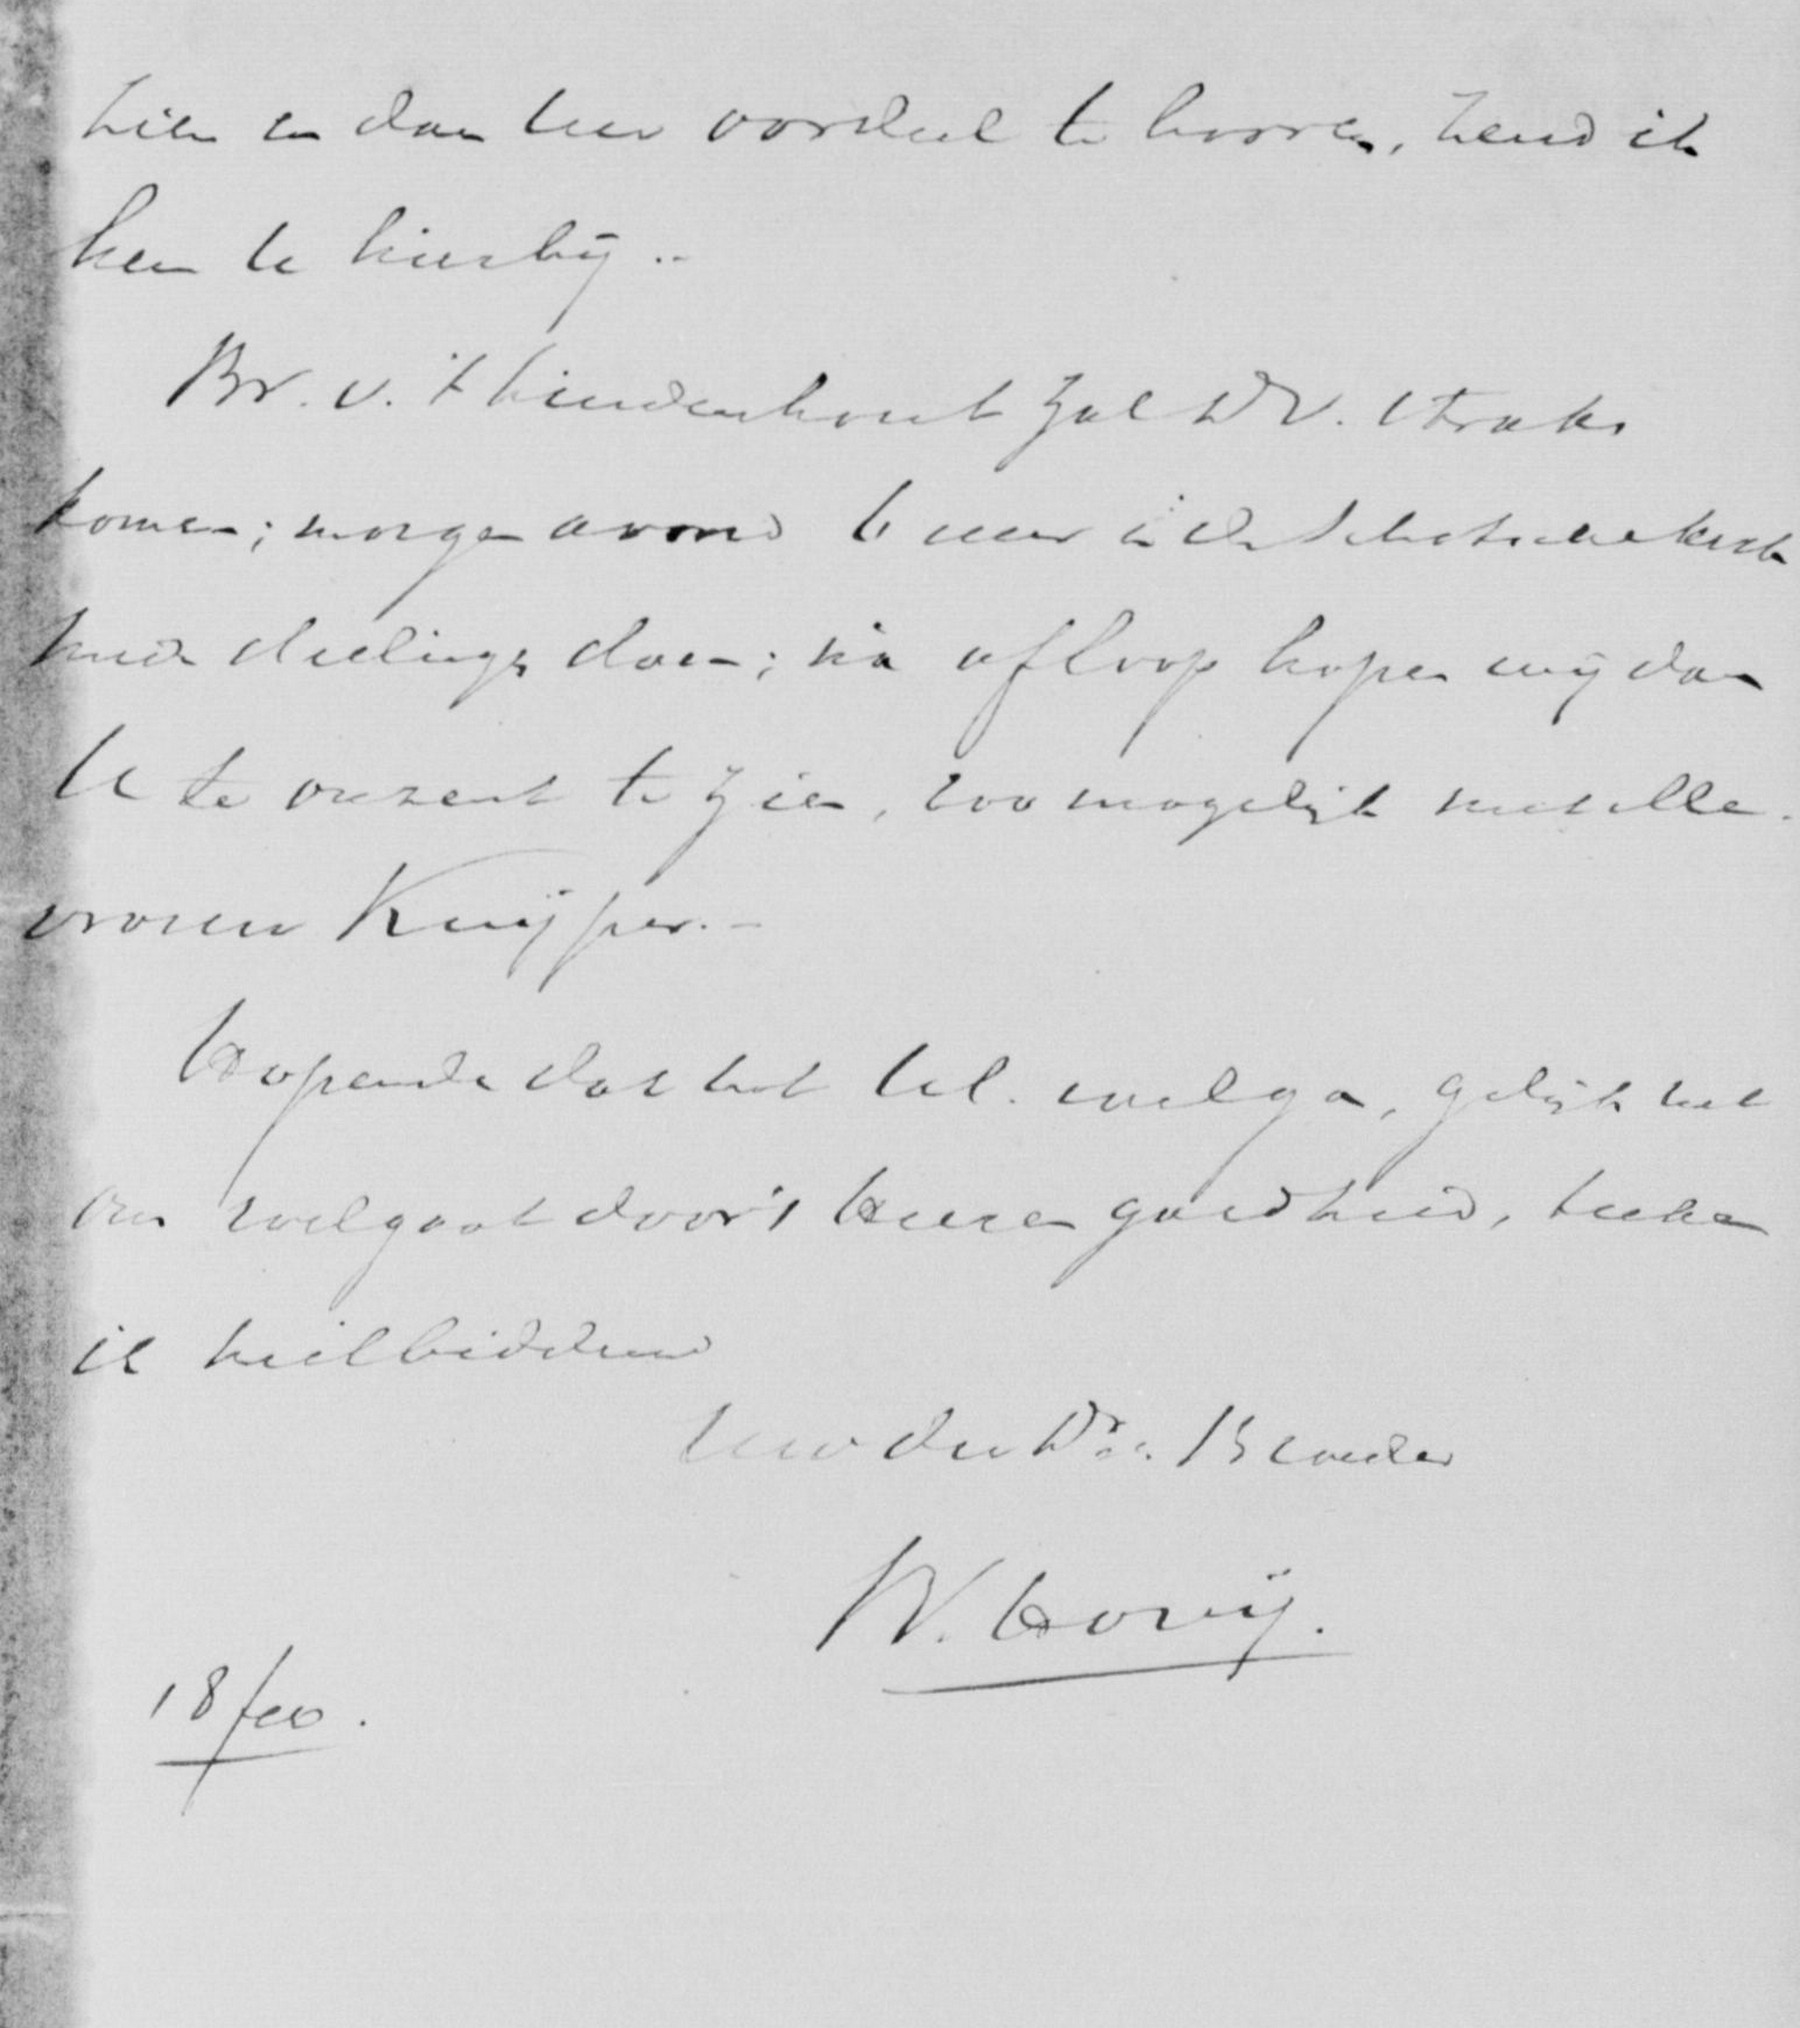 zien en dan uw oordeel te hooren, zend ik
hen U hierbij..
Br. v. 't Lindenhout zal D.V. straks
komen; morgen avond 6 uur in de Schotsche kerk
mededeelingen doen; na afloop hopen wij dan
U te onzent te zien, zoo mogelijk met Me-
vrouw Kuijper.-
Hopende dat het Ul. welga, gelijk het
ons welgaat door 's Heeren goedheid, teeken
ik heilbiddend
Uw dw Dr. Broeder
W. Hovij.
18 feb.